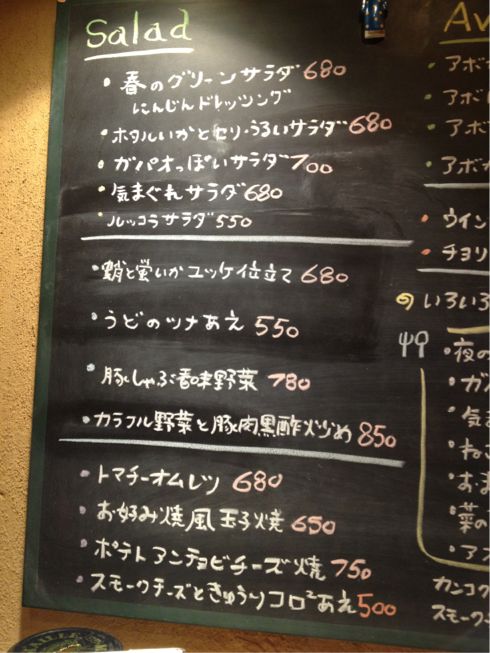 Salad
・春のグリーンサラダ 680
にんじんドレッシング
・ホタルいかとセリ・うるいサラダ 680
・ガパオっぽいサラダ 700
・気まぐれサラダ 680
・ルッコラサラダ 550
・蛸と蛍いか ユッケ仕立て 680
・うどのツナあえ 550
・豚しゃぶ香味野菜 780
・カラフル野菜と豚肉黒酢炒め 850
・トマチーオムレツ 680
・お好み焼風玉子焼 650
・ポテトアンチョビチーズ焼 750
・スモークチーズときゅうりコロ²あえ 500
Av
・アボ
・アボ
・アボ
・アボ
・ウイン
・チョリ
いろいろ
・夜の
・ガ
・気ま
・ねこ
・おま
・菜の
・アス
カンコク
スモーク